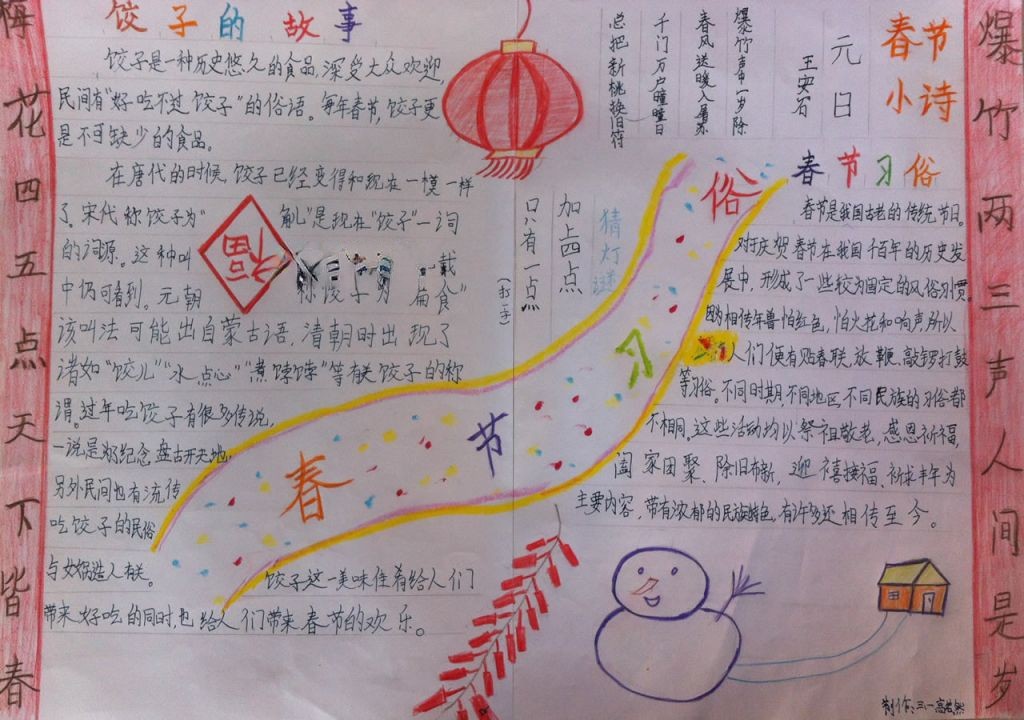 梅花四五点天下皆春
饺子的故事
饺子是一种历史悠久的食品,深受大众欢迎,
民间有"好吃不过饺子"的俗语。每年春节,饺子更
是不可缺少的食品。
在唐代的时候,饺子已经变得和现在一模一样
了。宋代称饺子为"角儿"是现在"饺子"一词
的词源。这种叫
载
中仍可看到。元朝称饺子为扁食"
该叫法可能出自蒙古语,清朝时出现了
诸如"饺儿""水点心""煮饽饽"等有关饺子的称
谓。过年吃饺子有很多传说,
一说是为纪念盘古开天地,
另外民间也有流传
吃饺子的民俗
与女娲造人有关。
饺子这一美味佳肴给人们
带来好吃的同时,也给人们带来春节的欢乐。
福
春节习俗
只有一点
加上四点
(打一字)
猜灯谜
春节小诗
元日
王安石
爆竹声中一岁除
春风送暖入屠苏
千门万户曈曈日
总把新桃换旧符
春节习俗
春节是我国古老的传统节日。
对于庆贺春节在我国千百年的历史发
展中,形成了一些较为固定的风俗习惯。
因为相传年兽怕红色,怕火花和响声,所以
人们便有贴春联,放鞭,敲锣打鼓
等习俗。不同时期,不同地区,不同民族的习俗都
不相同。这些活动均以祭祖敬老,感恩祈福,
阖家团聚、除旧布新,迎禧接福、祈求丰年为
主要内容,带有浓郁的民族特色,有许多还相传至今。
爆竹两三声人间是岁
制作:三一高